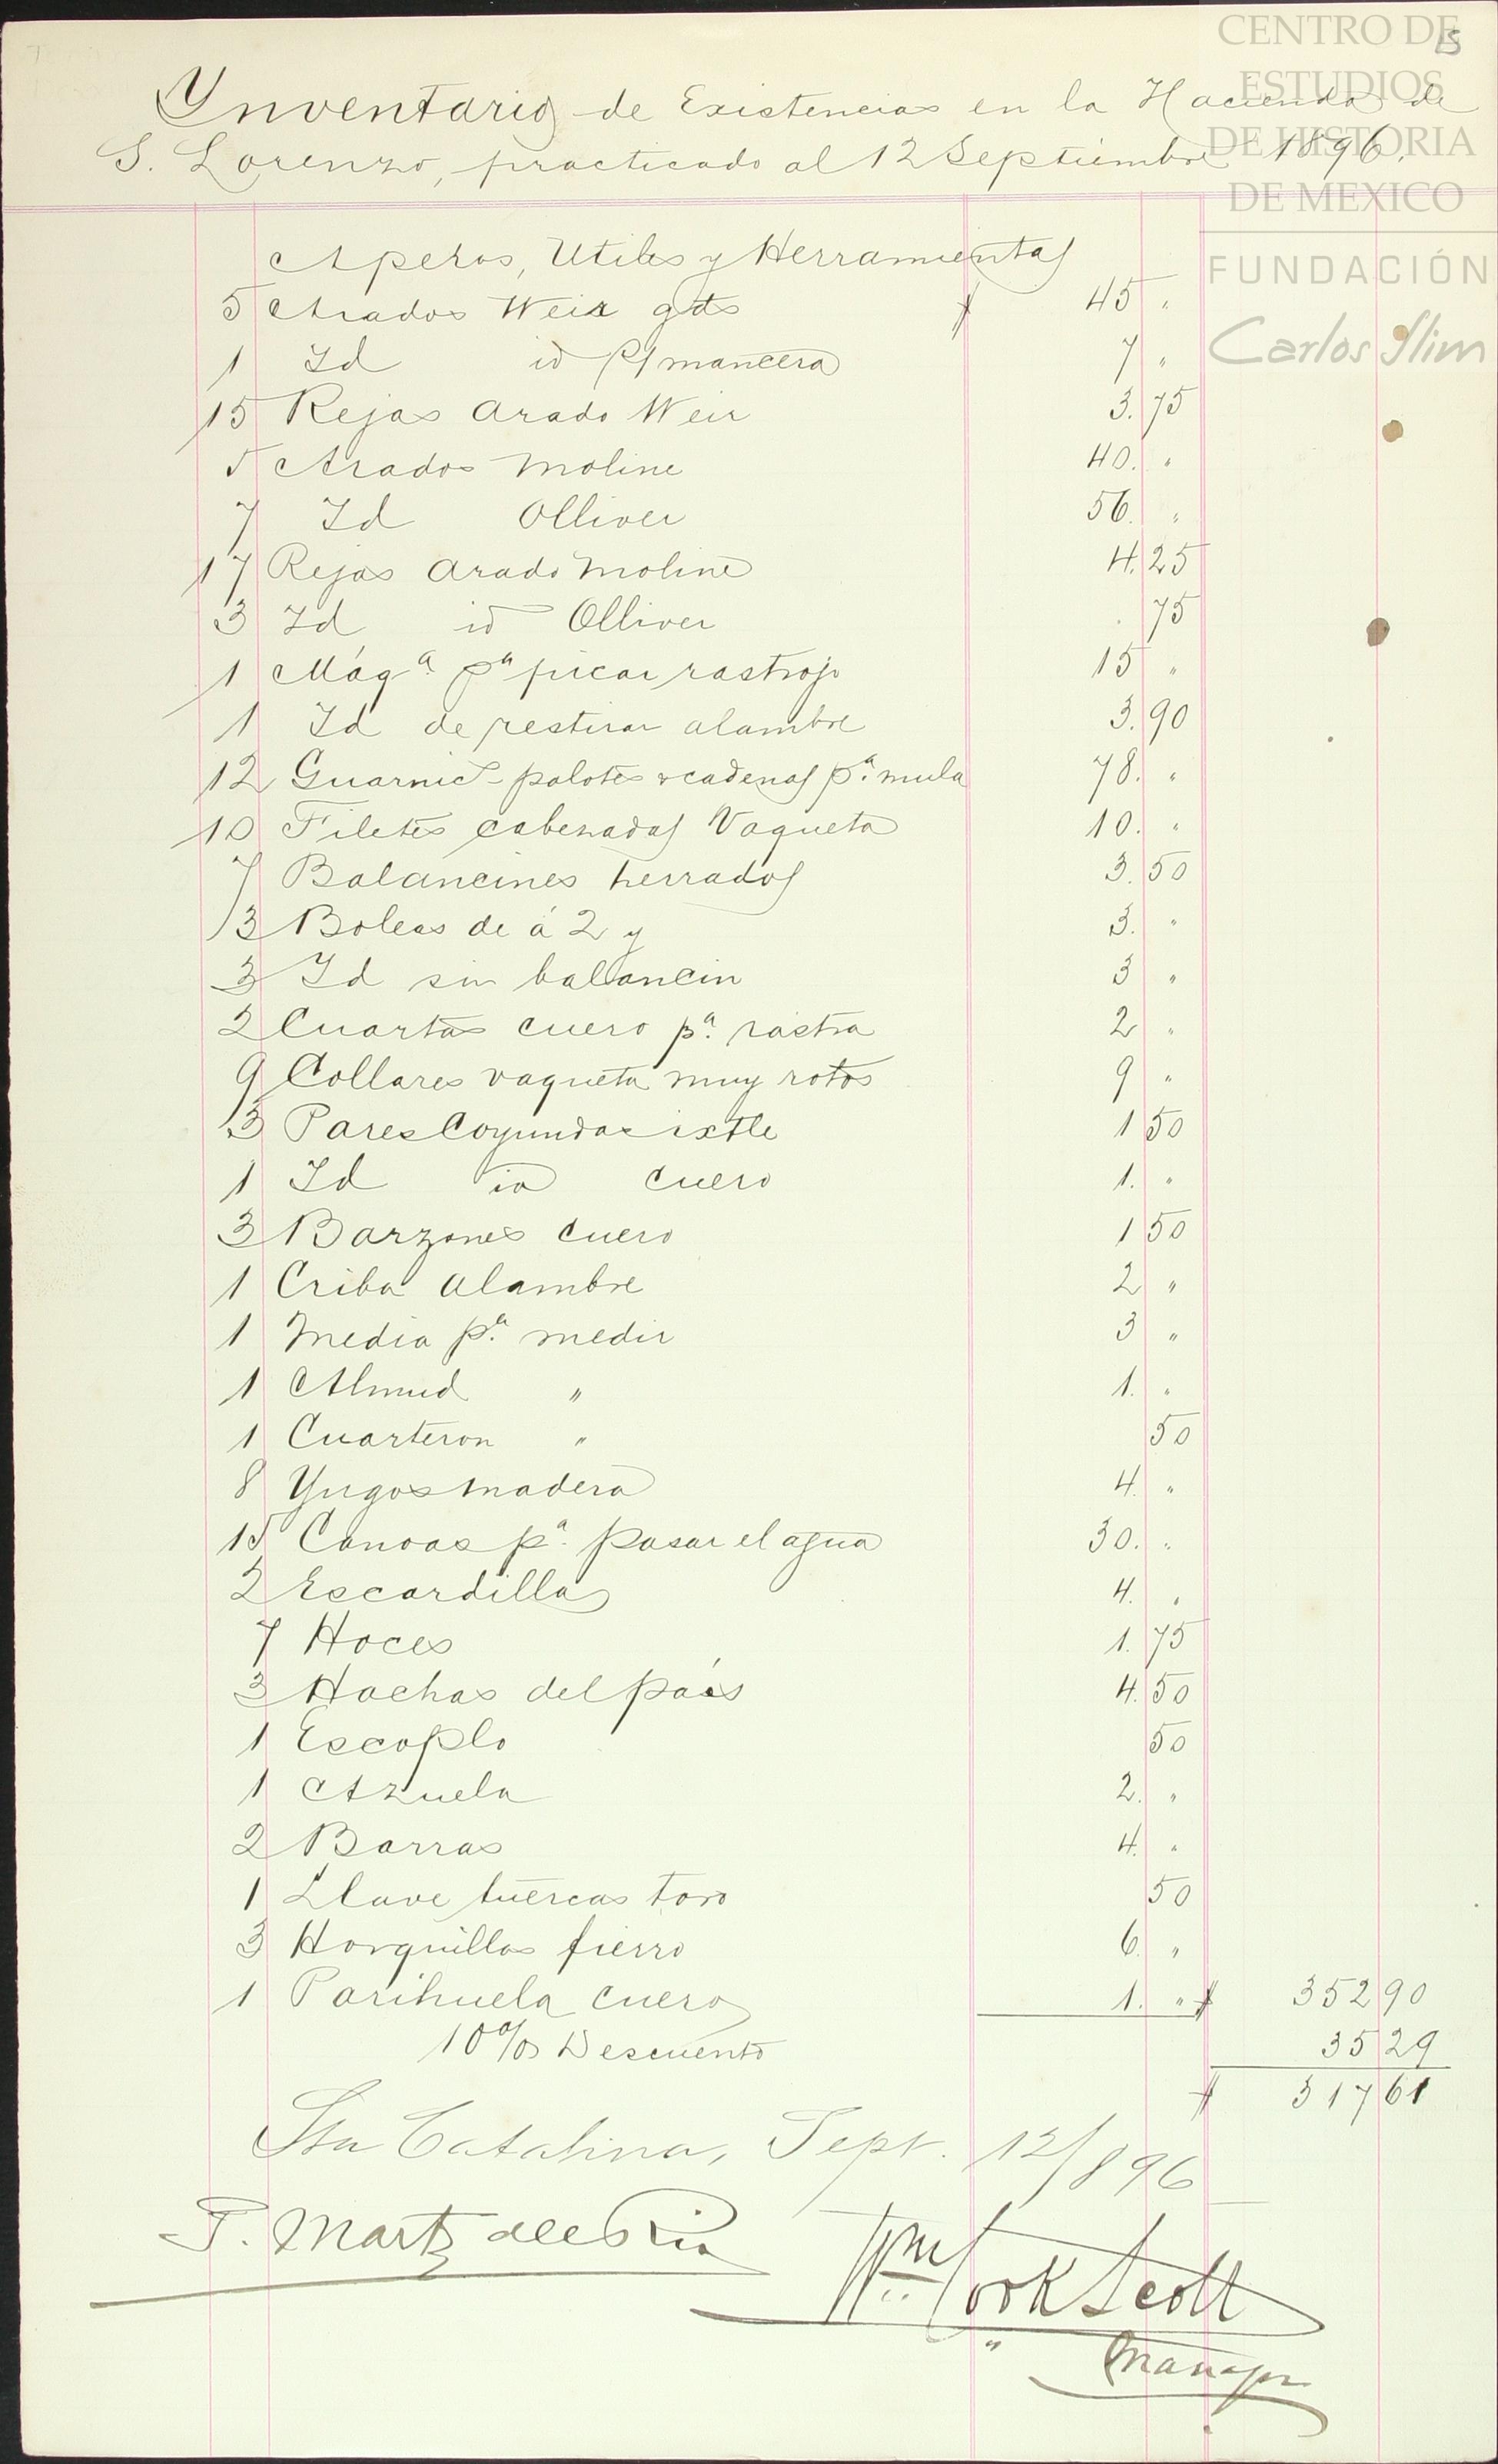 CENTRO DE
ESTUDIOS
DE HISTORIA
DE MEXICO
FUNDACIÓN
Carlos Slim
15
Ynventario de Existencias en la Hacienda de
S. Lorenzo, practicado al 12 Septiembre 1896.
Aperos, Utiles y Herramientas
5 Arados Weir gds $ 45 "
1 Id id p/ mancera 7 "
15 Rejas Arado Weir 3.75
5 Arados Moline 40. "
7 Id Olliver 56. "
17 Rejas Arado Moline 4.25
3 Id id Olliver . 75
1 Máqa. pa picar rastrojo 15 "
1 Id de restirar alambre 3.90
12 Guarnics palotes y cadenas pa. mula 78. "
10 Filetes cabezadas Vaqueta 10. "
7 Balancines herrados 3.50
3 Boleas de á 2 y 3. "
3 Id sin balancin 3 "
2 Cuartas cuero pa. rastra 2 "
9 Collares vaqueta muy rotos 9 "
3 Pares Coyundas ixtle 1 50
1 Id id cuero 1. "
3 Barzones cuero 1 50
1 Criba alambre 2 "
1 Media pa. medir 3 "
1 Almud " 1. "
1 Cuarteron " 50
8 Yugos madera 4. "
15 Canoas pa. pasar el agua 30. "
2 Escardillas 4. "
7 Hoces 1.75
3 Hachas del país 4.50
1 Escoplo 50
1 Azuela 2. "
2 Barras 4. "
1 Llave tuercas toro 50
3 Horquillas fierro 6. "
1 Parihuela cuero 1. " $ 352 90
10% Descuento 35 29
$ 317 61
Sta Catalina, Sept. 12/896
P. Martz del Rio
Wm Cook Scott
Manager